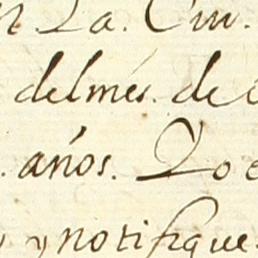 La. Ciu.
del més. de
años.
y notifique